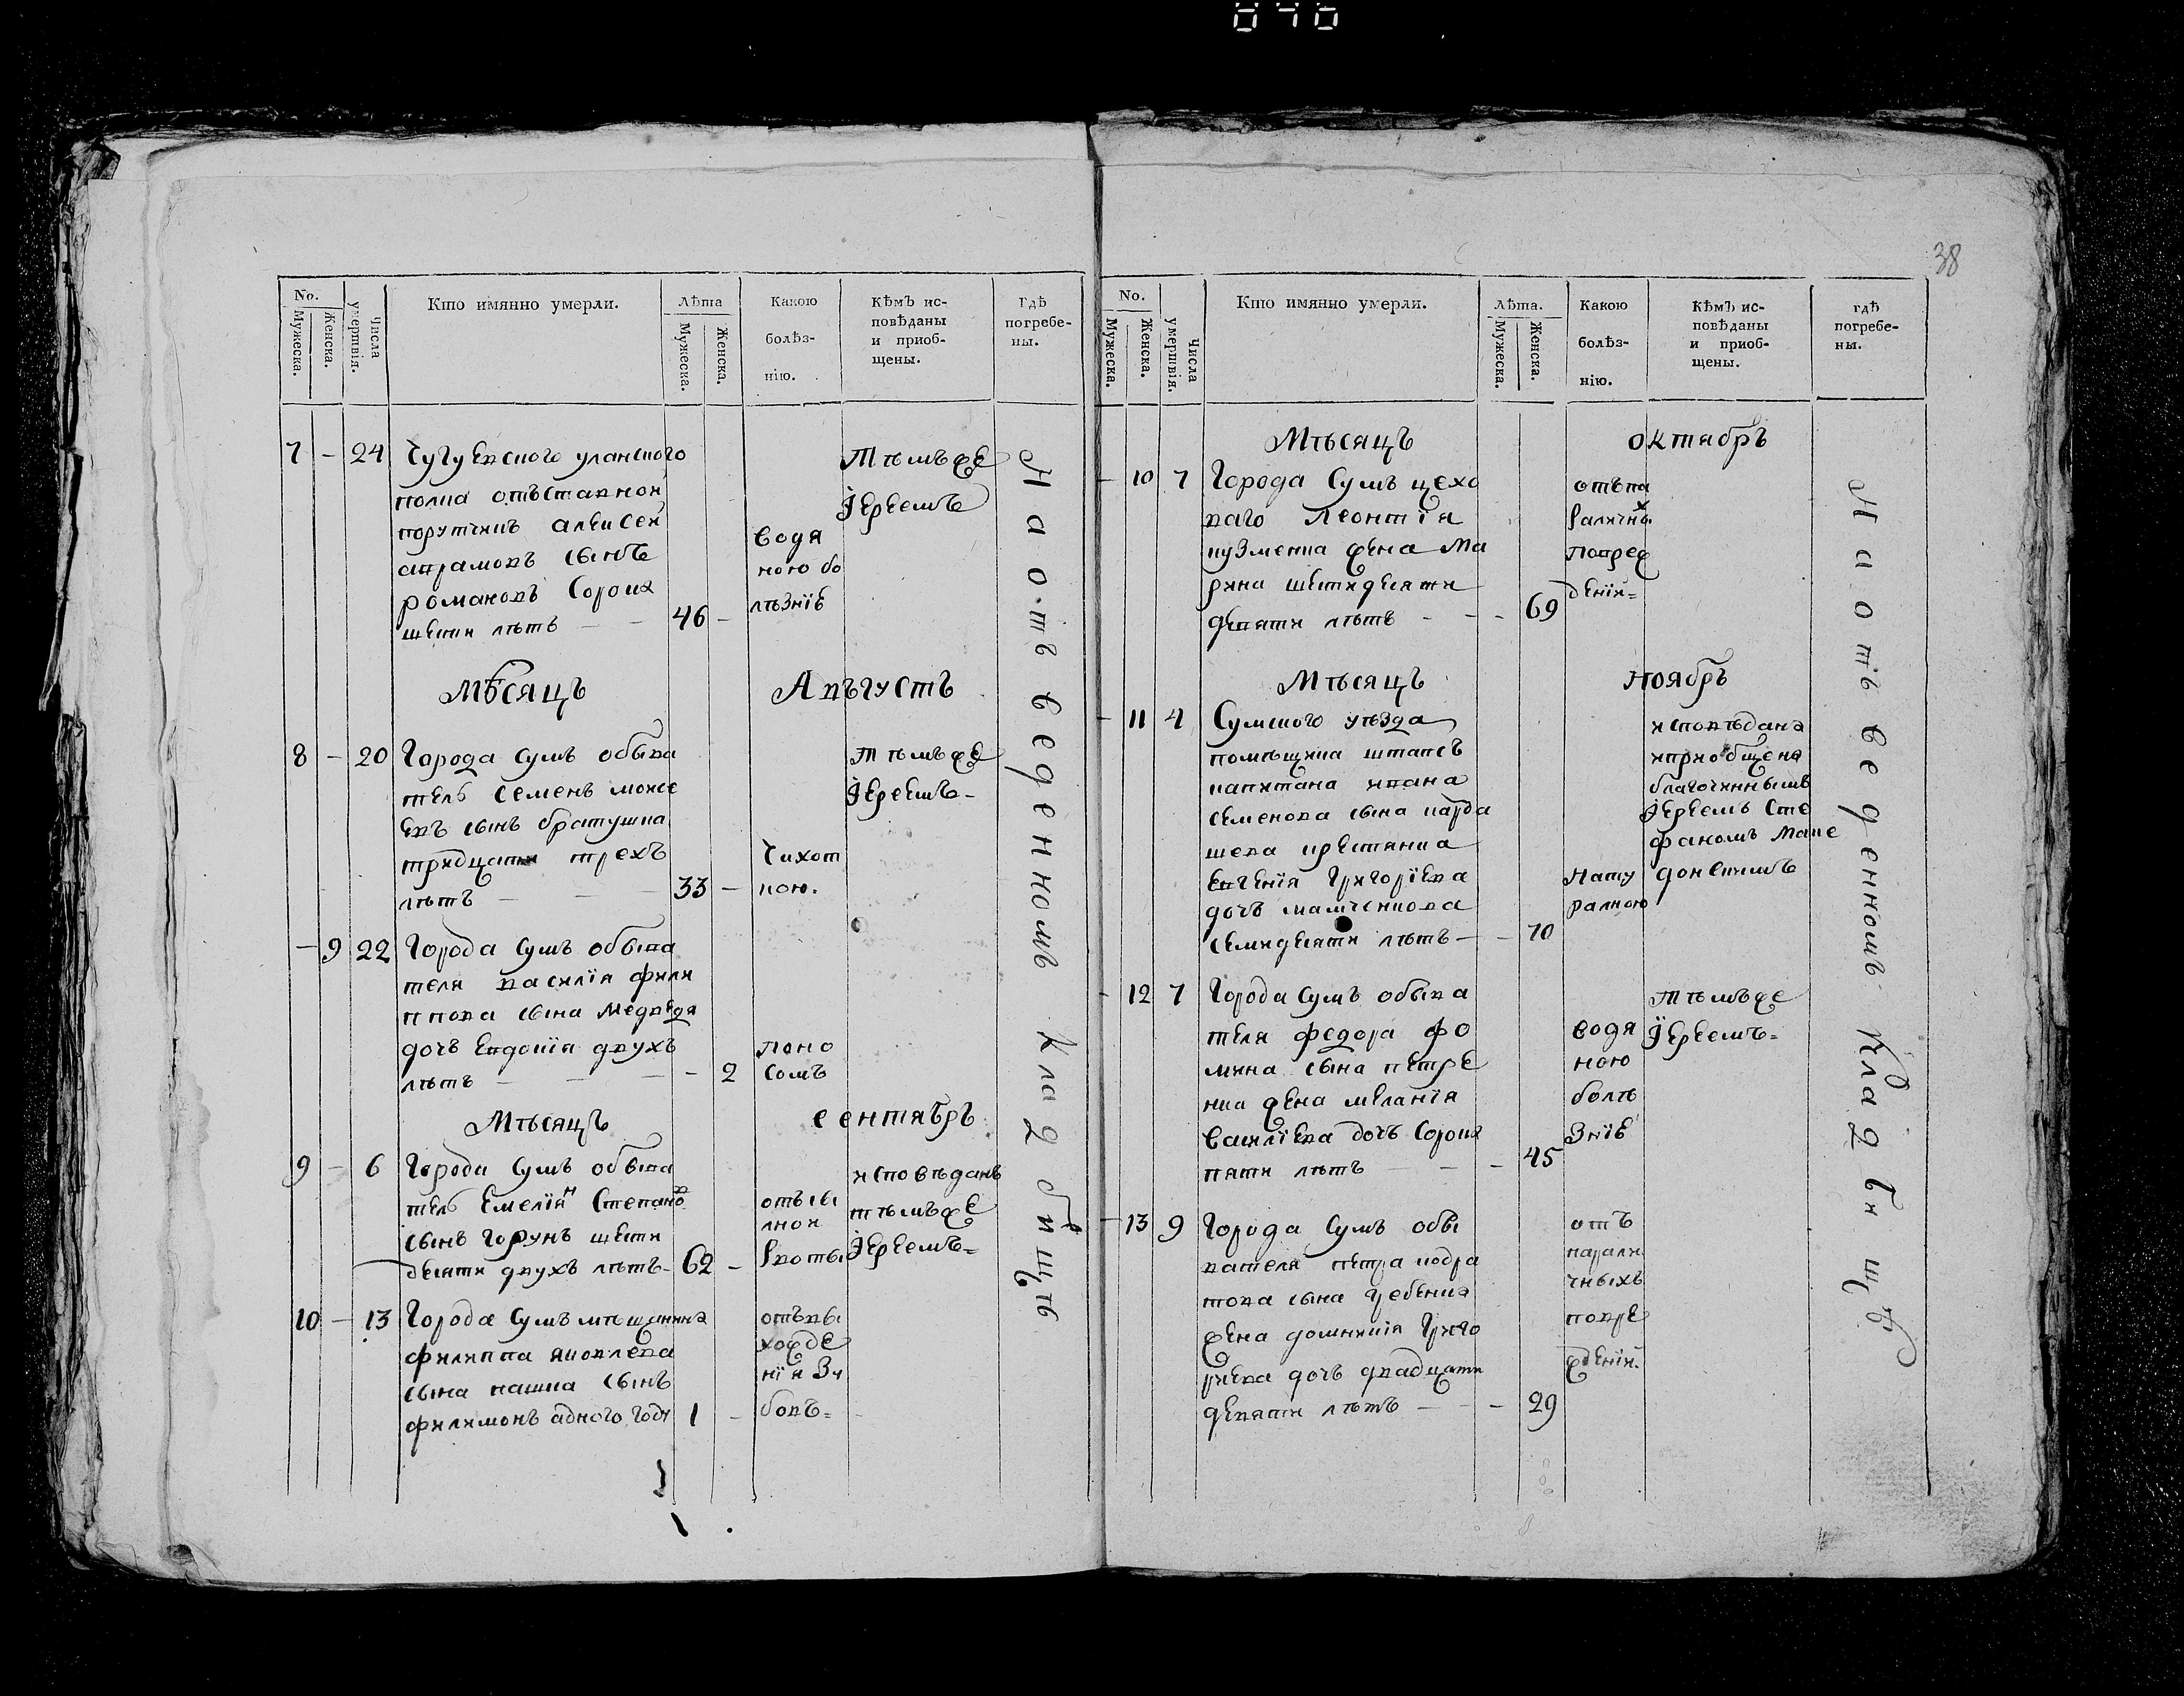 38
No.
Мужеска.
Женска.
Числа умертвія.
Кто имянно умерли.
Лѣта
Мужеска.
Женска.
Какою
болѣз-
нію.
Кѣмъ ис-
повѣданы
и приоб-
щены.
гдѣ
погребе-
ны.
7 – 24 Чугуевского уланского
полка отъставной
порутчикъ алексей
аврамовъ сынъ
романовъ Сорока
шести лѣтъ — — 46 –
водя
ною бо
лѣзніе
Тѣмъже
Іереемъ
Мѣсяцъ Авъгустъ
8 – 20 Города Сумъ обыва
тель Семенъ моисе
евъ сынъ братушка
тридцати трехъ
лѣтъ — — — 33 –
Чихот
кою.
Тѣмъже
Іереемъ-
– 9 22 Города Сумъ обыва
теля василія фили
ппова сына медведя
дочь Евдокія двухъ
лѣтъ — — — – 2
поно
сомъ
Мѣсяцъ сентябръ
9 – 6 Города Сумъ обыва
тель Емеліян Степано в
сынъ горунъ шести
десяти двухъ лѣтъ- 62 –
отъ си
лной
рвоты
исповѣданъ
тѣмъже
Іереемъ=
10 – 13 Города Сумъ мѣщанина
филиппа яковлева
сына пашка сынъ
филимонъ адного году 1 –
отъвы
хожде
нія зу
бовъ=
На отъведенномъ Кладбищѣ
No.
Мужеска.
Женска.
Числа умертвія.
Кто имянно умерли.
Лѣта.
Мужеска.
Женска.
Какою
болѣз-
нію.
Кѣмъ ис-
повѣданы
и приоб-
щены.
гдѣ
погребе-
ны.
Мѣсяцъ октябръ
– 10 7 Города Сумъ цехо
ваго Леонтія
кузменка жена Ма
рина шестидесяти
девяти лѣтъ - - – 69
отъпа
раличны х
повреж
деній=
Мѣсяцъ Ноябръ
– 11 4 Сумского уѣзда
помѣщика штапсъ
капитана ивана
Семенова сына карда
шева крестянка
Евгенія Григоріева
дочь
семидесяти лѣтъ — – 70
Нату
ралною
исповѣдана
иприобщена
благочиннымъ
Іереемъ Сте
фаномъ Маке
донскимъ
– 12 7 Города Сумъ обыва
теля федора фо
мина сына петре
нка жена меланія
Василіева дочь Сорока
пяти лѣтъ — — – 45
водя
ною
болѣ
зніе
Тѣмъже
Іереемъ=
– 13 9 Города Сумъ обы
вателя петра кодра
това сына
жена домникія Григо
риева дочь двадцати
девяти лѣтъ — — – 29
отъ
парали
чныхъ
повре
жденій.
На отъведенномъ Кладбищѣ